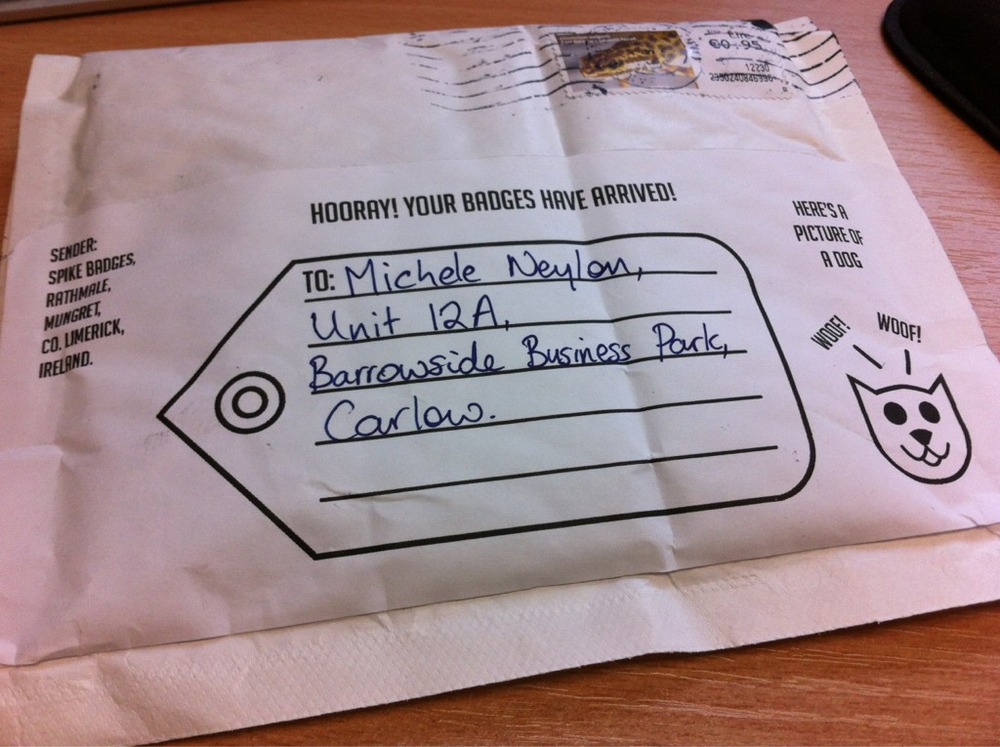 Éire
€0.95
12230
HOORAY! YOUR BADGES HAVE ARRIVED!
SENDER:
SPIKE BADGES,
RATHMALE,
MUNGRET,
CO. LIMERICK,
IRELAND.
TO: Michele Neylon,
Unit 12A,
Barrowside Business Park,
Carlow.
HERE'S A
PICTURE OF
A DOG
WOOF!
WOOF!